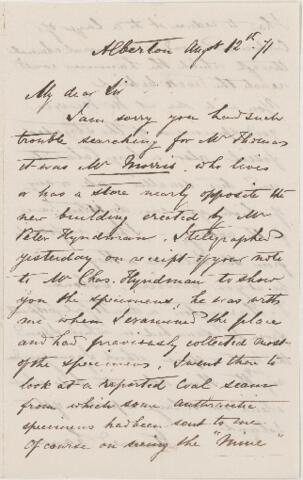 Alberton Augt 12th 71
My dear Sir
I am sorry you had such
trouble searching for Mr Thomas
it was Mr Morris, who lives
or has a store nearly opposite the
new building erected by Mr
Peter Hyndman, I telegraphed
yesterday on receipt of your note
to Mr Chas. Hyndman to show
you the specimens, he was with
me when I examined the place
and had previously collected most
of the specimens, I went there to
look at a reported Coal seam
from which some anthracitic
specimens had been sent to me
Of course on seeing the "Mine"